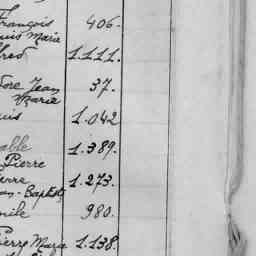 François 406.
uis Marie
fred 1.111.
dore Jean 37.
Marie
uis 1.042
able 1.389.
Pierre
ierre 1.273.
an-Baptiste
mile 980.
Pierre Marie 1.138.